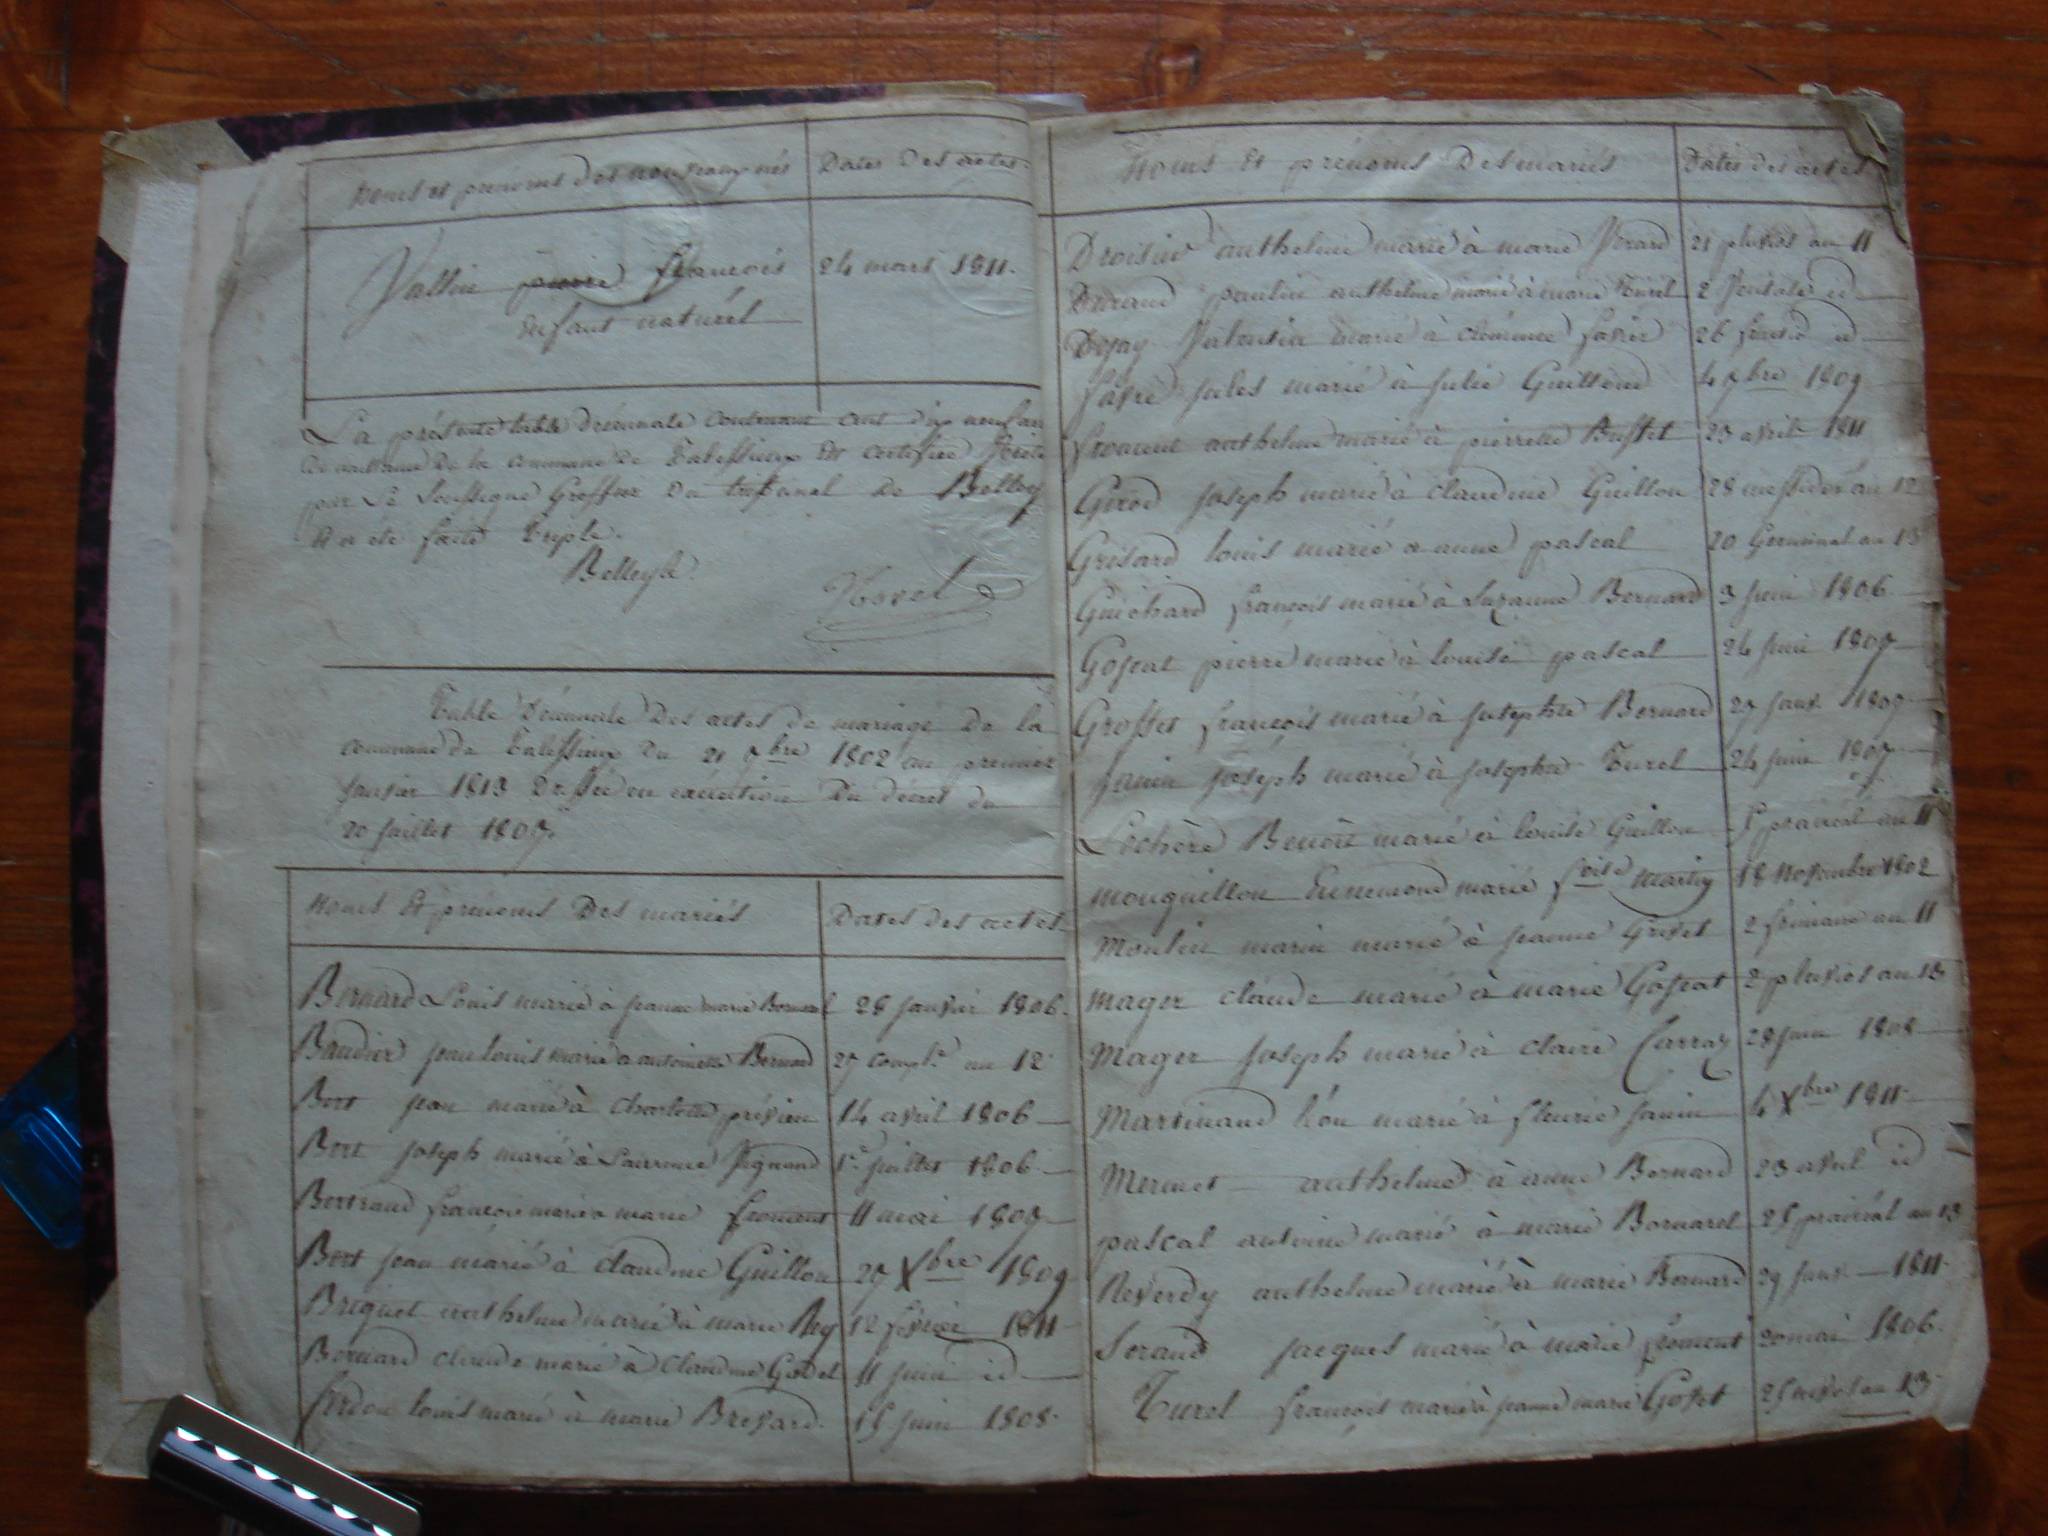 Noms et prénoms des nouveaux nés Dates des actes
Vallin pierre françois 24 mars 1811.
enfant naturél
La présente table décennale contenant cent dix neuf
de naissance de la commune de Talessieux est certifiée
par le soussigné Greffier du tribunal de Belley
a été faite triple.
Belley le
Table Décennale Des actes de mariage de la
commune de Talessieux du 21 7bre 1802 au premier
janvier 1813 Dressée en exécution Du décret du
20 juillet 1807.
Noms Et prénoms Des mariés Dates des actes
Bernard Louis marié à jeanne marie Bornarel 28 janvier 1806.
Baudier jean louis marié a antoinette Bernard compl.re an 12
Bert jean marié à Charlotte 14 avril 1806
Bert joseph marié à Laurence 1er juillet 1806
Bertrand françois marié a marie froment 11 mai 1807
Bert jean marié à claudine Guillon 27 Xbre 1809
Briquet anthelme marié à marie Rey 12 février 1811
Bernard claude marié à Claudine 11 juin id
louis marié à marie Brevard. 15 juin 1808.
Noms Et prénoms Des mariés Dates des actes
Droisier anthelme marié à marie 21 pluvios an 11
Durand paulin anthelme marié à marie Turel 2 Ventose id
marié à clémence favier 26 id
favre jules marié à julie Guillond 4 7bre 1809
froment anthelme marié à pierrette Buffet 23 avril 1811
Girod joseph marié à claudine Guillon 28 messidor an 12
Grisard louis marié a anne pascal 20 Germinal an 13
Guichard françois marié à Suzanne Bernard 3 juin 1806
pierre marié à louise pascal 24 juin 1807
Grosset françois marié à josephte Bernard 27 janv. 1807
janin joseph marié à josephte Turel 24 juin 1807
Lochère Benoît marié à louise Guillon prairial an 11
mouquillon Ennemond marié foise martin 18 Novembre 1802
Moulin marin marié à jeanne Grivet 2 frimaire an 11
mager claude marié à marie 2 pluvios an 13
Mager joseph marié à claire Carraz 28 juin 1808
Martinand léon marié à fleurie janin 4 Xbre 1811
Mermet anthelme à anne Bornard 23 avril id
pascal antoine marié à marie Bornarel 25 prairial an 13
Reverdy anthelme marié à marie Bernard 29 janv 1811
Serand jacques marié à marie froment 20 mai 1806
Turel françois marié à jeanne marie 25 nivos an 13